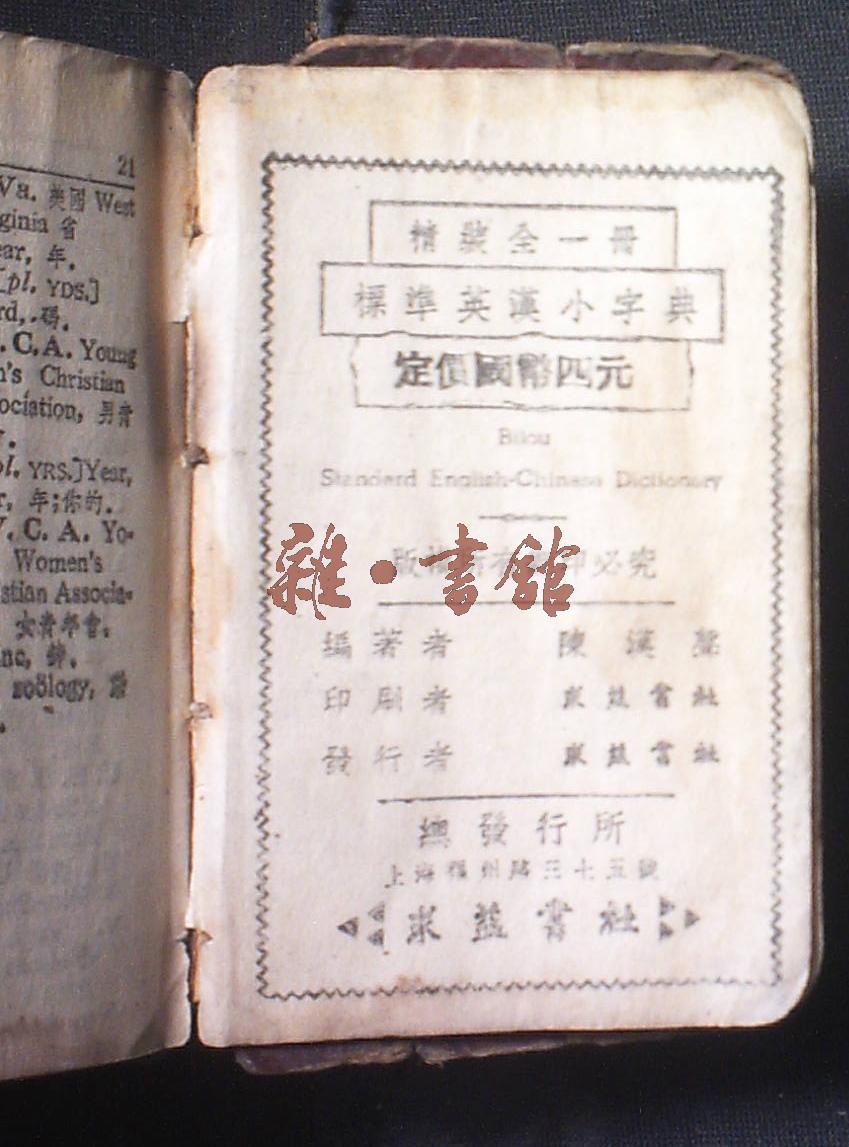 21
Va. 美國 West
ginia 省
ear, 年.
[pl. YDS.]
rd, .碼.
. C. A. Young
n's Christian
ociation, 男青
pl. YRS.] Year,
r, 年;你的.
. C. A. Yo-
Women's
stian Associa-
女青年會.
nc, 鋅.
zoölogy, 動
精裝全一冊
標準英漢小字典
定價國幣四元
Standard English-Chinese Dictionary
雜·書館
必究
編著者 陳漢聲
印刷者 求益書社
發行者 求益書社
總發行所
上海福州路三七五號
求益書社